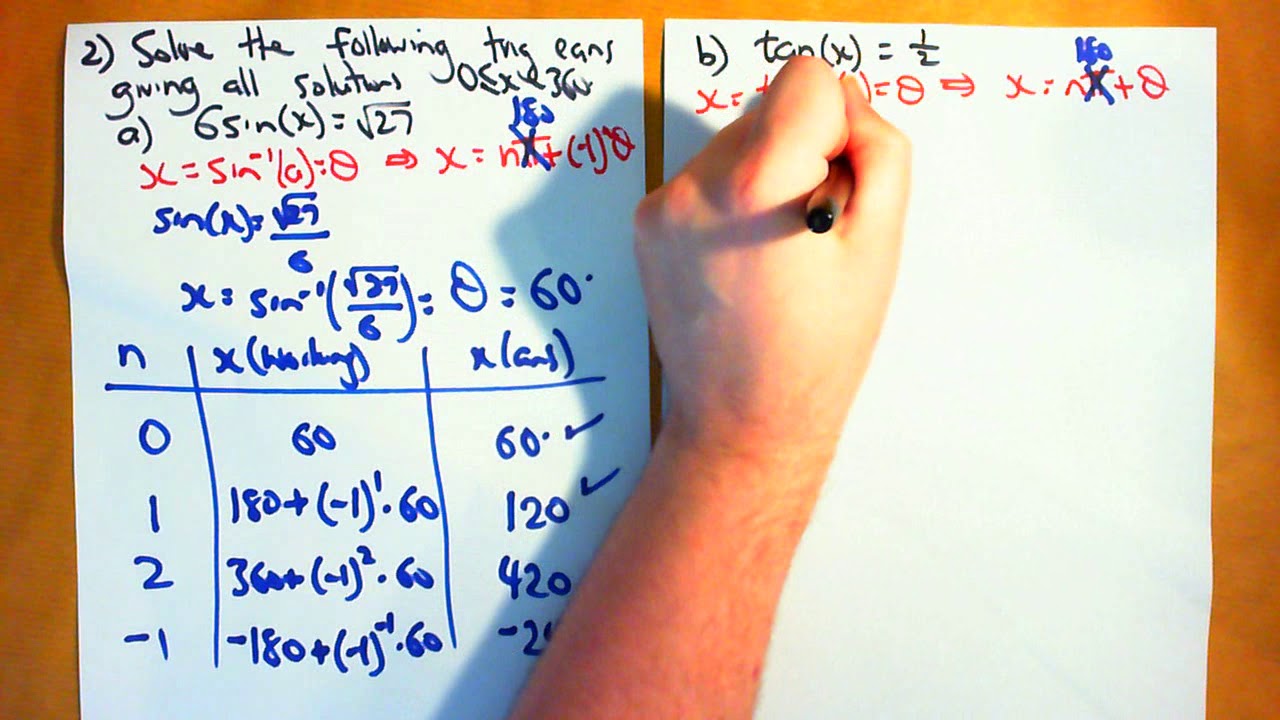 2) Solve the following trig eqns
giving all solutions 0≤x<360
a) 6sin(x) = √27
180
x = sin⁻¹(a) = θ ⇒ x = nπ + (-1)ⁿθ
sin(x) = √27/6
x = sin⁻¹(√27/6) = θ = 60°
n x (working) x (ans)
0 60 60° ✓
1 180+(-1)¹·60 120 ✓
2 360+(-1)²·60 420
-1 -180+(-1)⁻¹·60
b) tan(x) = 1/2
180
x = ) = θ ⇒ x = nπ + θ